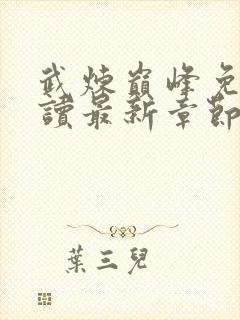 武煉巔峰免
讀最新章節
葉三兒